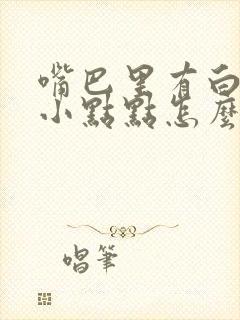 嘴巴里有白
小點點怎麼
唱筆